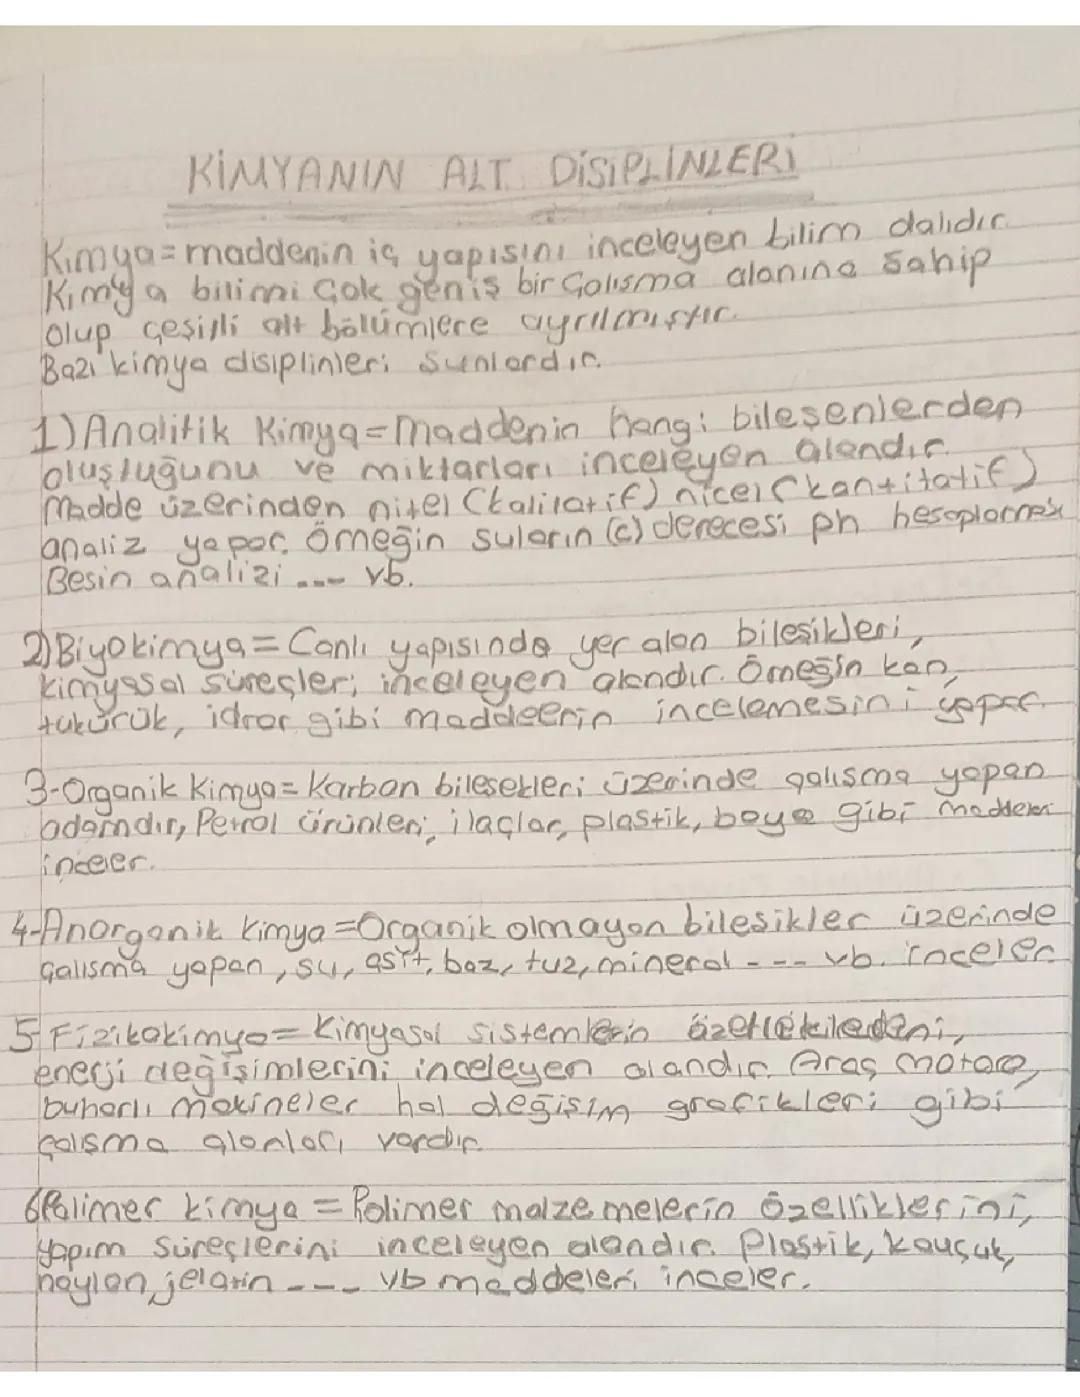 KİMYANIN ALT DİSİPLİNLERİ
Kimya=maddenin iç yapısını inceleyen bilim dalıdır.
Kimya bilimi çok geniş bir çalısma alanına sahip
olup çeşitli alt bölümlere ayrılmıştır.
Bazı kimya disiplinleri sunlardır.
1) Analitik Kimya=Maddenin hangi bileşenlerden
oluştuğunu ve miktarları inceleyen alandır.
Madde üzerinden nitel (kalitatif) nicel (kantitatif)
analiz yapar. Örneğin suların (c) derecesi ph hesaplaması
Besin analizi ... vb.
2) Biyokimya= Canlı yapısında yer alan bileşikleri,
kimyasal süreçleri inceleyen alandır. Örneğin kan,
tükürük, idrar gibi maddelerin incelemesini yapar.
3-Organik Kimya= Karbon bilesekleri üzerinde çalısma yapan
adamdır, Petrol ürünleri, ilaçlar, plastik, boya gibi maddeleri
inceler.
4-Anorganik kimya =Organik olmayan bilesikler üzerinde
çalısma yapan, su, asit, baz, tuz, mineral --- vb. inceler.
5-Fizikokimya= Kimyasal sistemlerin
enerji değişimlerini inceleyen alandır. Araç motoru,
buharlı makineler hal değişim grafikleri gibi
çalışma alanları vardır.
6)Polimer kimya = Polimer malzemelerin özelliklerini,
yapım süreçlerini inceleyen alandır. Plastik, kauçuk,
naylon, jelatin ---- vb maddeleri inceler.